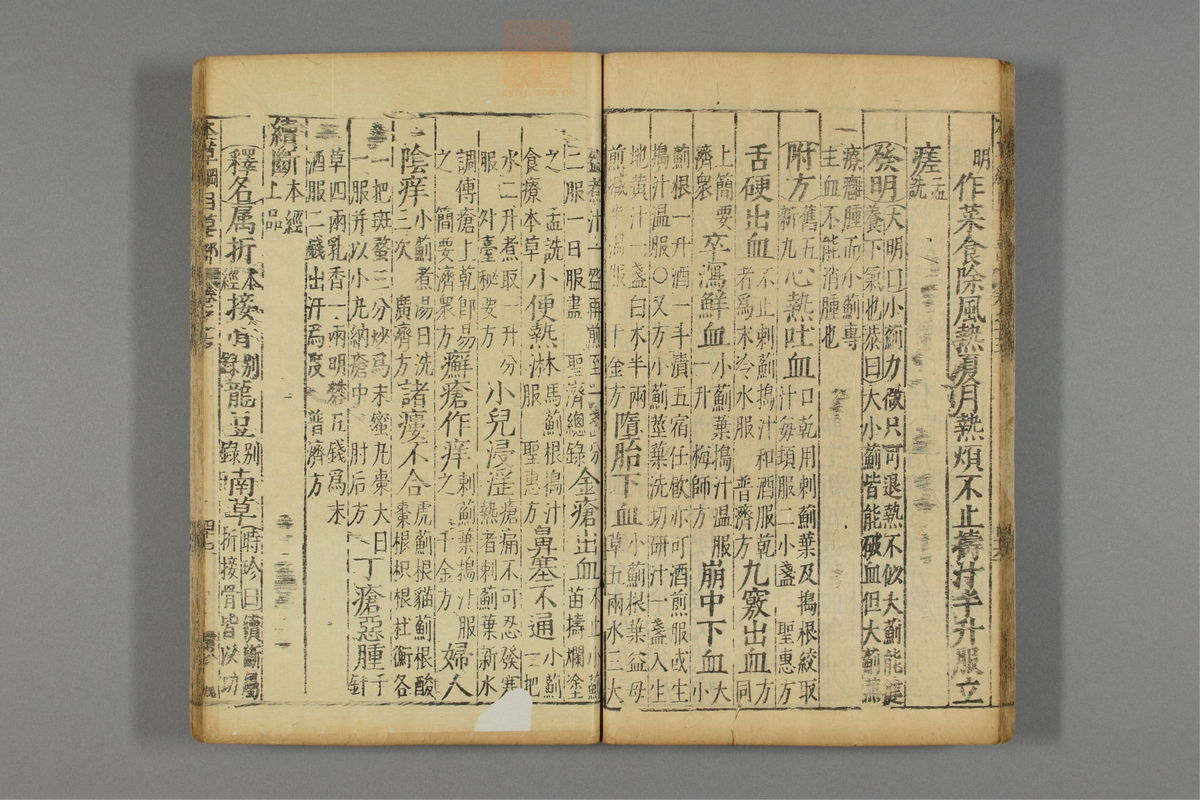 明作菜食除風熱夏月熱煩不止擣汁半升服立
瘥孟詵
發明大明曰小薊力微只可退熱不似大薊能健
養下氣也恭曰大小薊皆能破血但大薊兼
療癰腫而小薊專
主血不能消腫也
附方舊五新九心熱吐血口乾用刺薊葉及搗根絞取
汁每頓服二小盞聖惠方
舌硬出血不止刺薊搗汁和酒服乾
者為末冷水服普濟方九竅出血方同
上簡要
濟衆卒瀉鮮血小薊葉搗汁溫服
一升梅師方崩中下血大小
薊根一升酒一斗漬五宿任飲亦可酒煎服或生
搗汁溫服〇又方小薊莖葉洗切研汁一盞入生
地黃汁一盞白朮半兩
煎減半溫服千金方墮胎下血小薊根葉益母
草五兩水三大
煮汁一盞再煎至一盞分
二服一日服盡聖濟總錄金瘡出血不止小薊
苗擣爛塗
之孟詵
食療本草小便熱淋馬薊根搗汁
服聖惠方鼻塞不通小薊
一把
水二升煮取一升分
服外臺秘要方小兒浸淫瘡痛不可忍發寒
熱者刺薊葉新水
調傅瘡上乾即易
之簡要濟衆方癬瘡作痒刺薊葉搗汁服
之千金方婦人
陰痒小薊煮湯日洗
三次廣濟方諸瘻不合虎薊根貓薊根酸
棗根枳根杜衡各
一把斑蝥三分炒為末蜜丸棗大日
一服并以小丸納瘡中肘后方丁瘡惡腫千
針
草四兩乳香一兩明礬五錢為末
酒服二錢出汗為度普濟方
續斷本經
上品
釋名屬折本經接骨别錄龍豆别錄南草時珍曰續斷屬
折接骨皆以功
本草綱目草部